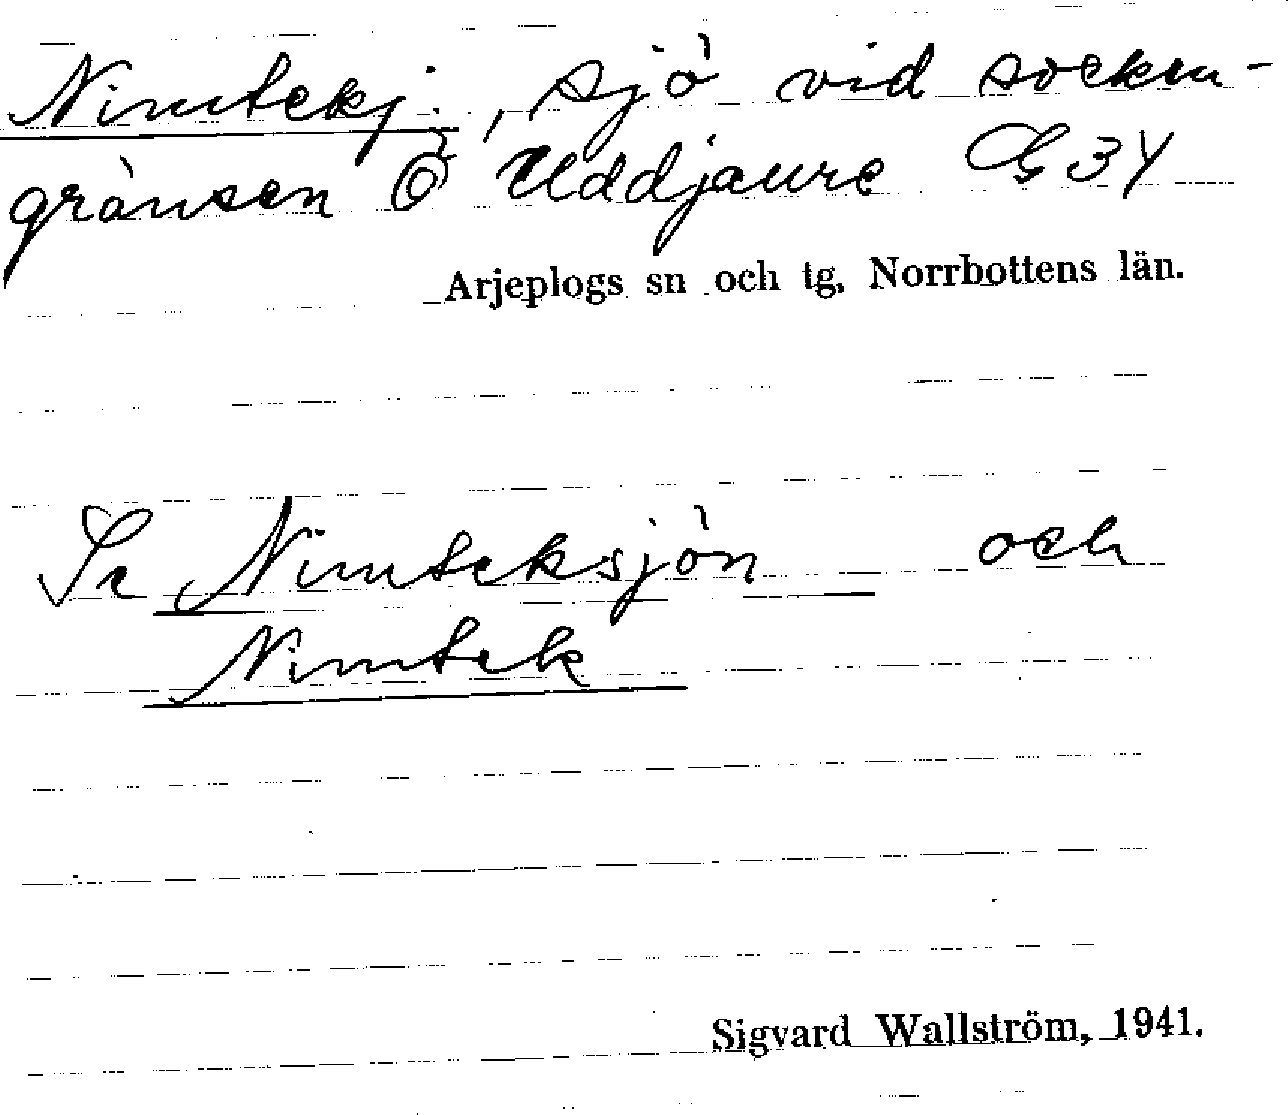 Nimtekj., sjö vid socken-
gränsen Ö Uddjaure G34
Arjeplogs sn och tg, Norrbottens län.
Se Nimteksjön och
Nimtek
Sigvard Wallström, 1941.